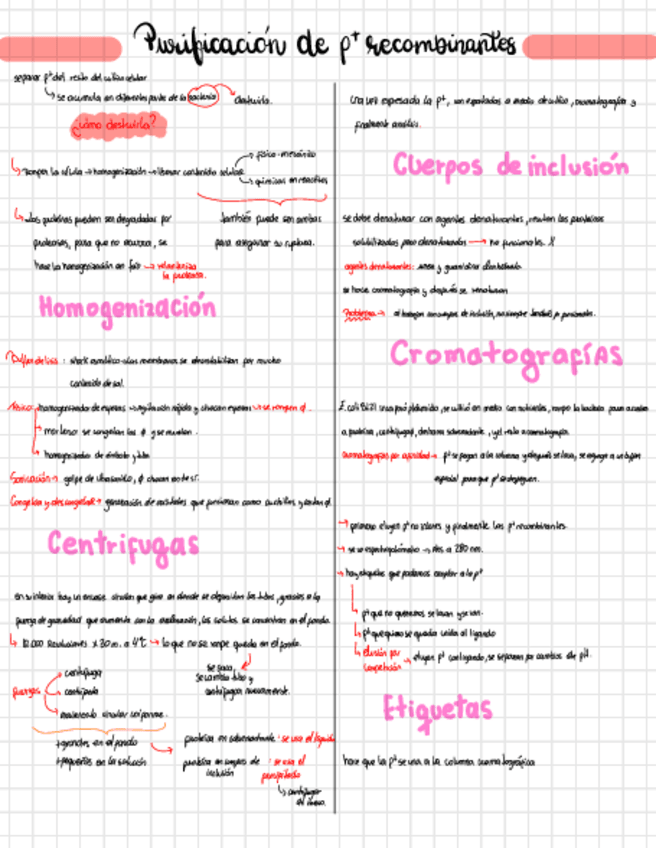 Purificación de p+ recombinantes
separar p+ del resto del cultivo celular
se acumula en diferentes partes de la bacteria → destruirla.
¿cómo destruirla?
romper la célula → homogenización → liberar contenido celular
físico-mecánico
químicas en reactivos
Las proteínas pueden ser degradadas por
proteasas, para que no ocurra, se
hace la homogenización en frío → relentiza
la proteasa.
también puede ser ambas
para asegurar su ruptura.
Homogenización
: shock osmótico → las membranas se desestabilizan por mucho
contenido de sal.
Físico: homogenizador de esperas → agitación rápida y chocan esperas → se rompen
mortero: se congelan las y se muelen.
homogenizador de émbolo y tubo
Sonicación → golpe de ultrasonido, chocan entre sí.
Congelar y descongelar → generación de cristales que funcionan como cuchillos y
Centrifugas
en su interior hay un envase circular que gira en donde se depositan los tubos, gracias a la
fuerza de gravedad que aumenta con la aceleración, los solutos se concentran en el fondo.
10.000 Revoluciones x 30 m. a 4°C → lo que no se rompe queda en el fondo.
se saca,
se cambia tubo y
centrifugar nuevamente.
fuerzas
centrífuga
centrípeta
movimiento circular uniforme.
+grandes en el fondo
+pequeñas en la solución
proteína en sobrenadante: se usa el líquido
proteína en cuerpos de : se usa el
inclusión precipitado
centrifugar
de nuevo.
Una vez expresada la p+, son exportadas a medio de cultivo, cromatografía y
finalmente análisis.
Cuerpos de inclusión
se debe denaturar con agentes denaturantes, resultan las proteínas
solubilizadas pero denaturadas → no funcionales. X
agentes denaturantes: urea y guanidina clorhidrato
se hace cromatografía y después se renaturan
Problema →
Cromatografías
E. coli BL21 crea para plásmido, se cultivó en medio con nutrientes, rompo la bacteria para acceder
a proteína, centrifugo, deshecho sobrenadante, y el resto a cromatografía.
cromatografía por afinidad → p+ se pegan a la columna y después se lava, se agrega un buffer
especial para que p+ se despeguen.
primero eluyen p+ no interes y finalmente las p+ recombinantes.
se usa espectrofotómetro → Abs a 280 nm.
hay etiquetas que podemos acoplar a la p+
p+ que no queremos se lavan y se van.
p+ que quiero se queda unida al ligando
elusión por
competición → eluyen p+ con ligando, se separan por cambios de pH.
Etiquetas
hace que la p+ se una a la columna cromatográfica